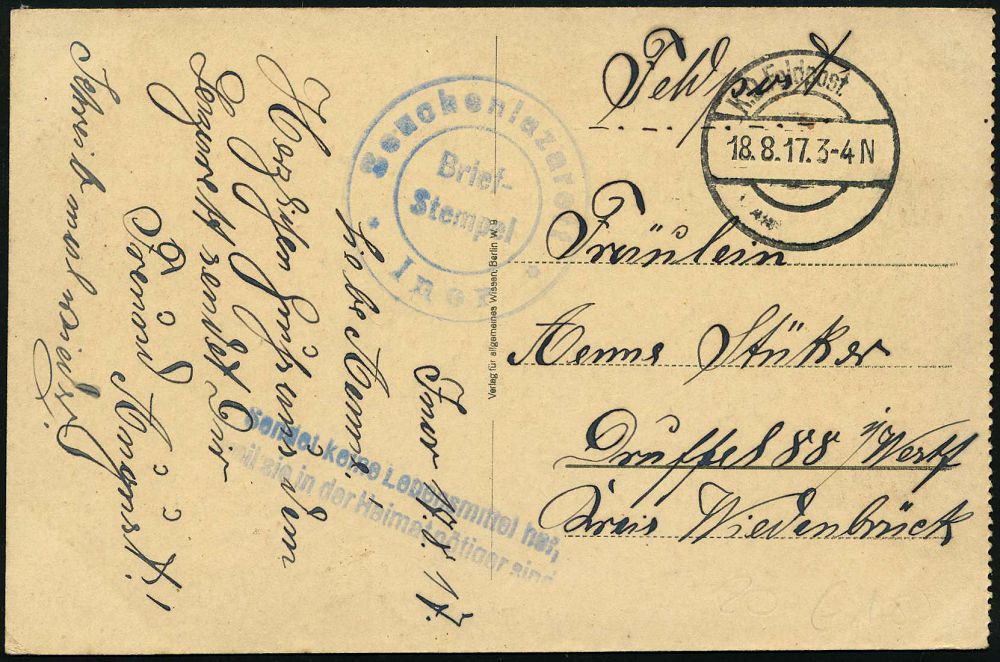 Feldpost
K.D. Feldpost
18.8.17. 3-4 N
Seuchenlazarett
Brief-
Stempel
Inor
Fräulein
Aenne Stüker
Druffel 88 i/Westf
Kreis Wiedenbrück
Verlag für allgemeines Wissen, Berlin W. 9
Sendet keine Lebensmittel her,
weil sie in der Heimat nötiger sind
Inor 17.8. 17.
Liebe Aenne!
Herzlichen Gruß aus dem
Lazarett sendet Dir
Freund August.
Schreib mal wieder